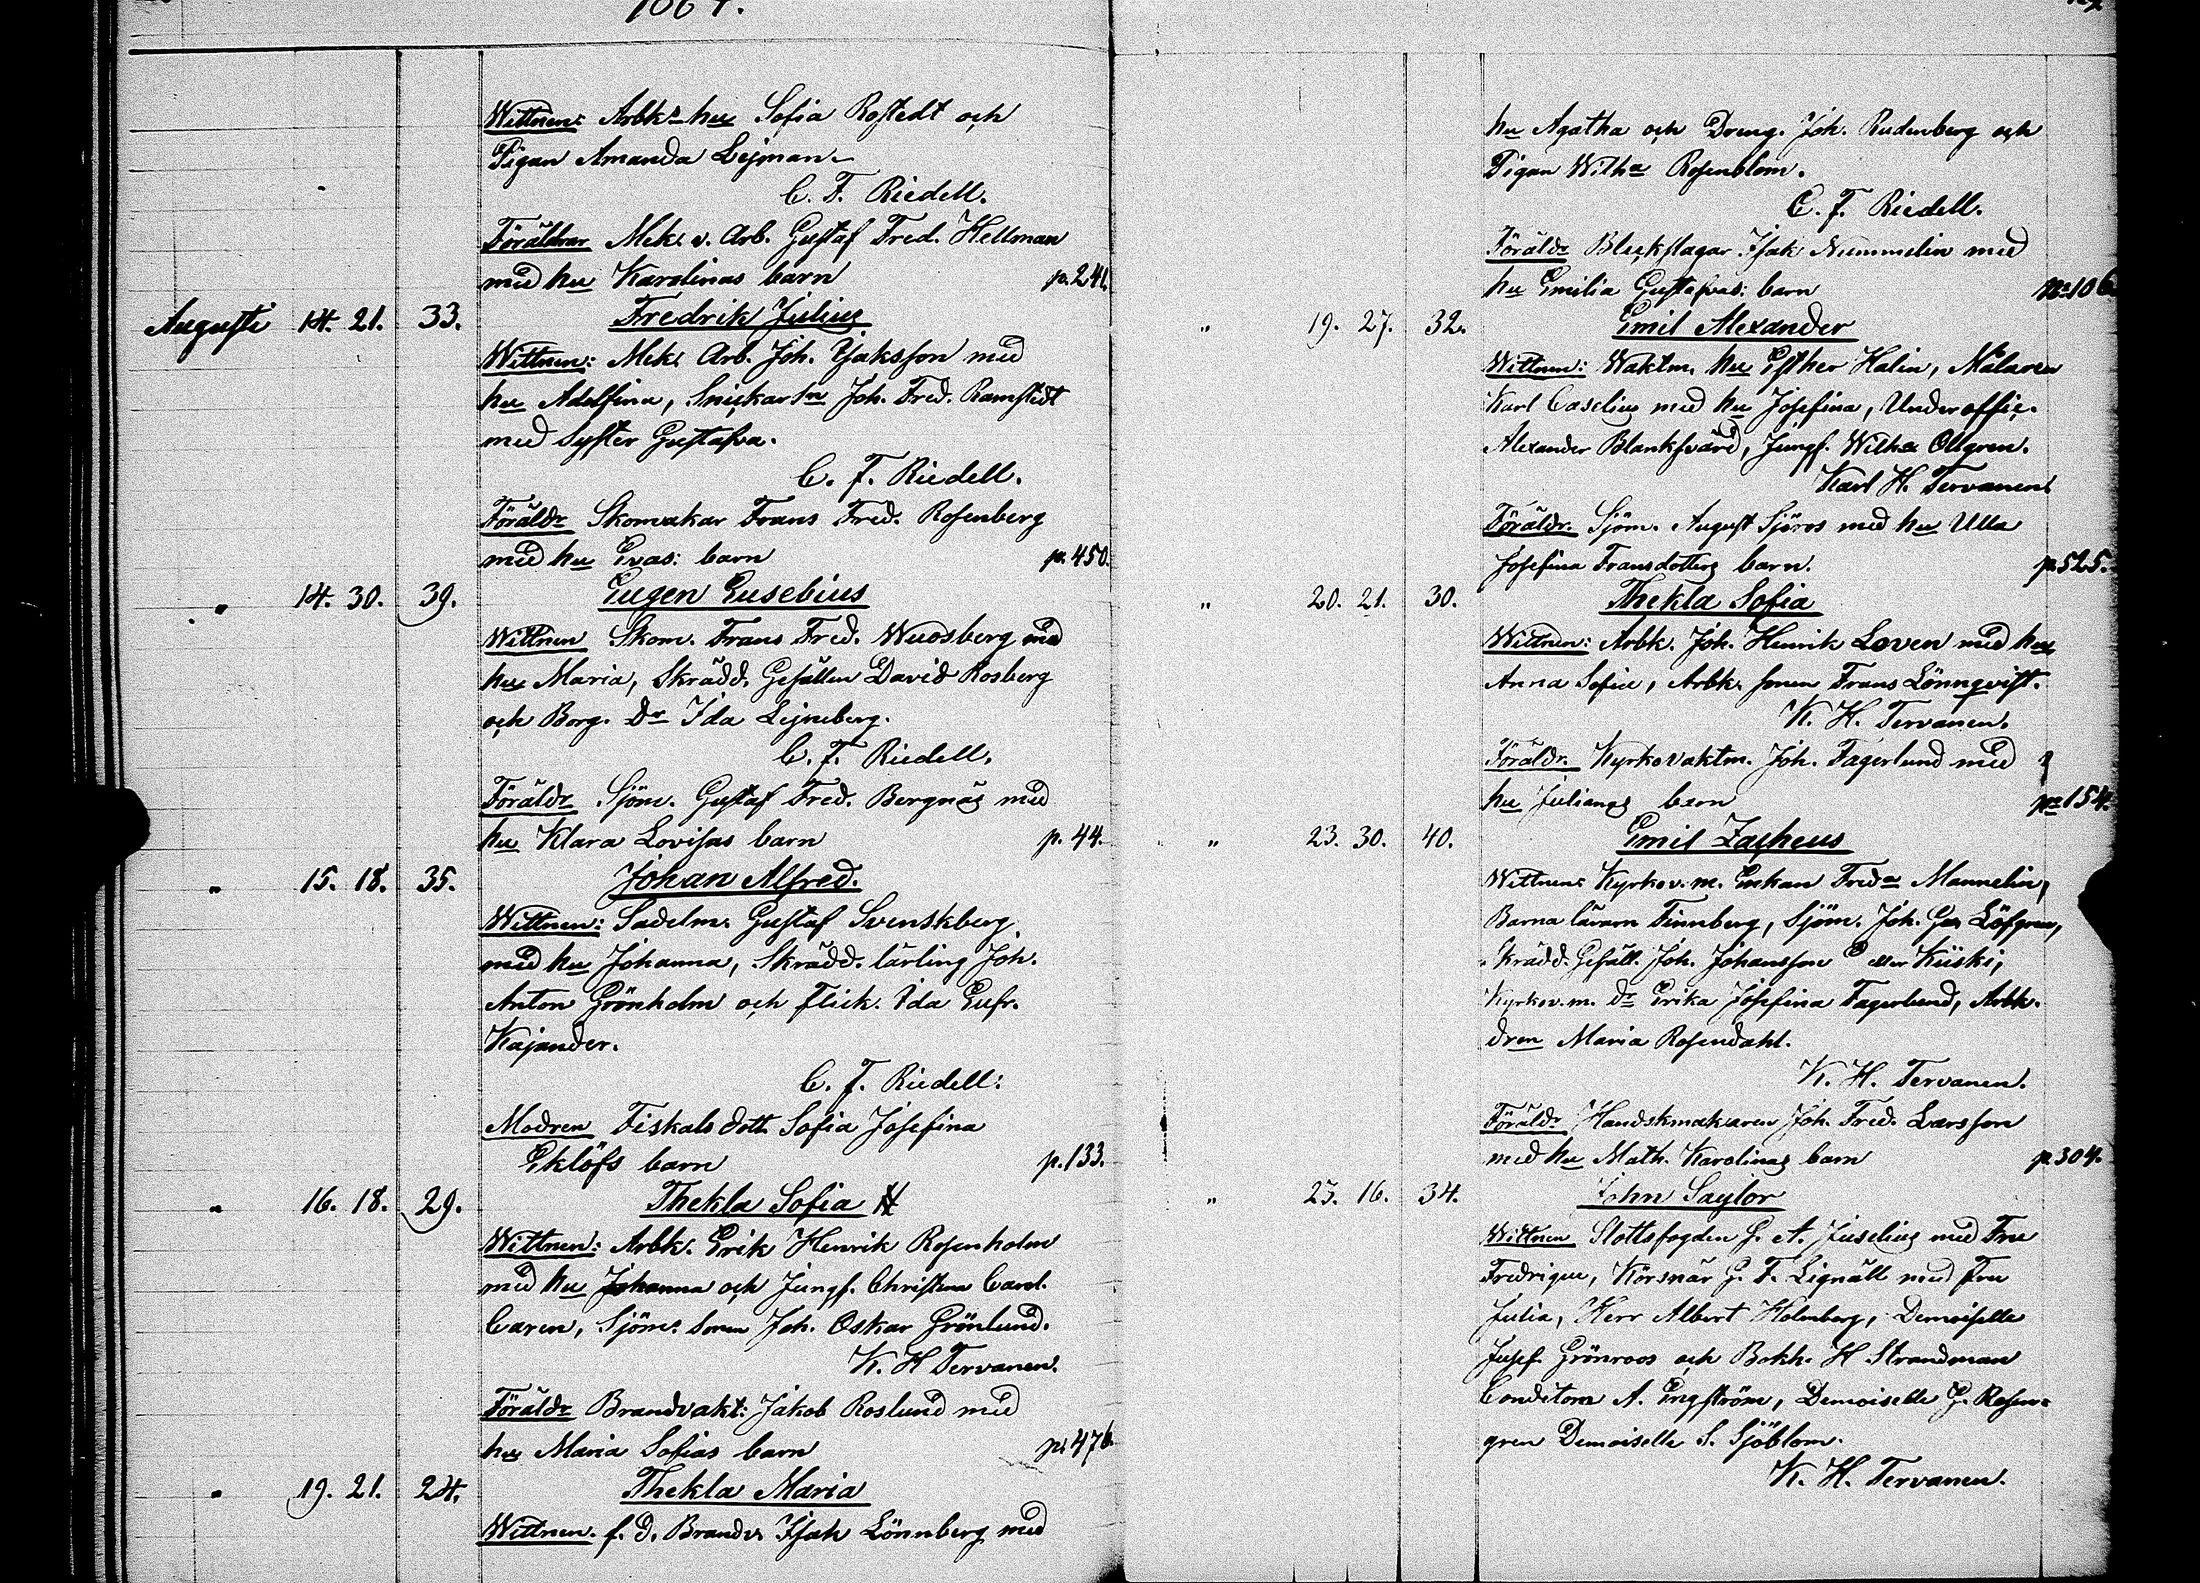 1864.
Wittnen: Arbks hu Sofia Rostedt och
Pigan Amanda Lejman.
C. F. Riedell.
Föräldrar Mek. v. Arb. Gustaf Fred. Hellman
med hu Karolinas barn p. 241.
Augusti 14. 21. 33. Fredrik Julius
Wittnen: Mek. Arb. Joh. Isaksson med
hu Adolfina, Snickar sn Joh. Fred. Ramstedt
med syster Gustafva.
C. F. Riedell.
Föräldr Skomakar Frans Fred. Rosenberg
med hu Evas: barn p. 450.
" 14. 30. 39. Eugen Eusebius
Wittnen Skom. Frans Fred. Wuosberg med
hu Maria, Skrädd. Gesällen David Rosberg
och Borg. Dr Ida Lejneberg.
C. F. Riedell.
Föräldr Sjöm. Gustaf Fred. Bergnäs med
hu Klara Lovisas barn p. 44.
" 15. 18. 35. Johan Alfred.
Wittnen: Sadelm. Gustaf Svenskberg
med hu Johanna, Skrädd. lärling Joh.
Anton Grönholm och flick. Ida Eufr.
Kajander.
C. F. Riedell.
Modren Fiskals dott. Sofia Josefina
Eklöfs barn p. 133.
" 16. 18. 29. Thekla Sofia
Wittnen: Arbk. Erik Henrik Rosenholm
med hu Johanna och Jungf. Christina Carol.
Caren, Sjöms sonen Joh. Oskar Grönlund.
K. H Tervanen.
Föräldr Brandvakt: Jakob Roslund med
hu Maria Sofias barn p. 476
" 19. 21. 24. Thekla Maria
Wittnen. f. d. Brandv. Isak Lönnberg med
hu Agatha och Dreng. Joh. Rudenberg och
Pigan Wilh:a Rosenblom.
C. F. Riedell.
Föräldr Bleckslagar Isak Nummelin med
hu Emilia Gustafvas: barn No 106
" 19. 27. 32. Emil Alexander
Wittnen: Waktm. hu Esther Halin, Målaren
Karl Caselius med hu Josefina, Underoffic.
Alexander Blanksvärd, Jungf. Wilh:a Ollgren.
Karl H. Tervanen.
Föräldr. Sjöm. August Sjöros med hu Ulla
Josefina Fransdotters barn. p. 525.
" 20. 21. 30. Thekla Sofia
Wittnen: Arbk. Joh. Henrik Loven med hu
Anna Sofia, Arbk. sonen Frans Lönnqvist.
K. H. Tervanen.
Föräldr. Kyrkovaktm. Joh. Fagerlund med
hu Julianas barn 154.
" 23. 30. 40. Emil Zacheus
Wittnen: Kyrkov. m. Enkan Freda Mannelin,
Barna lärarn Finnberg, Sjöm. Joh. Löfgren,
Skrädd. Gesäll. Joh. Johansson eller Kiiski,
Kyrkov. m. dr Erika Josefina Fagerlund, Arbk.
dren Maria Rosendahl.
K. H. Tervanen.
Föräldr Handskmakaren Joh. Fred. Larsson
med hu Math. Karolinas barn p. 304.
" 23. 16. 34. John Saylor
Wittnen Slottsfogden G. A. Juselius med Fru
Fredrique, Körsnär G. F. Lignäll med Fru
Julia, Herr Albert Holmberg, Demoiselle
Josef. Grönroos och Bokh. H Strandman
Conditorn A. Engström, Demoiselle G. Rosen-
gren Demoiselle S. Sjöblom.
K. H. Tervanen.